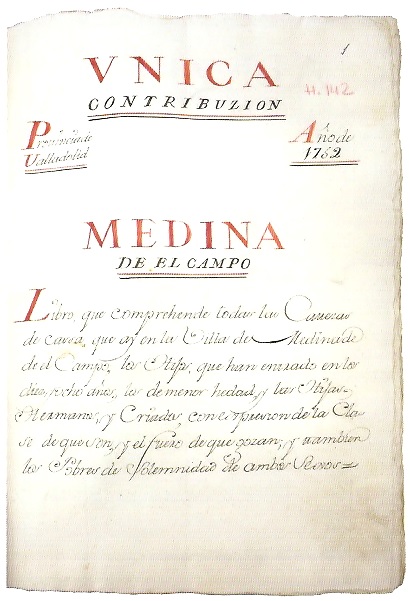 1
VNICA
CONTRIBUZION
H. 142
Provinciade
Valladolid
Año de
1752
MEDINA
DE EL CAMPO
Libro, que comprehende todas las Cavezas
de cassa, que ay en la Villa de Medina de
de el Campo, los Hijos, que han entrado en los
diez, y ocho años, los de menor hedad, y las Hijas
Hermanos, y Criados, con expresion de la Cla
se de que son, y el fuero de que gozan; y tambien
los Pobres de Solemnidad de ambos Sexos